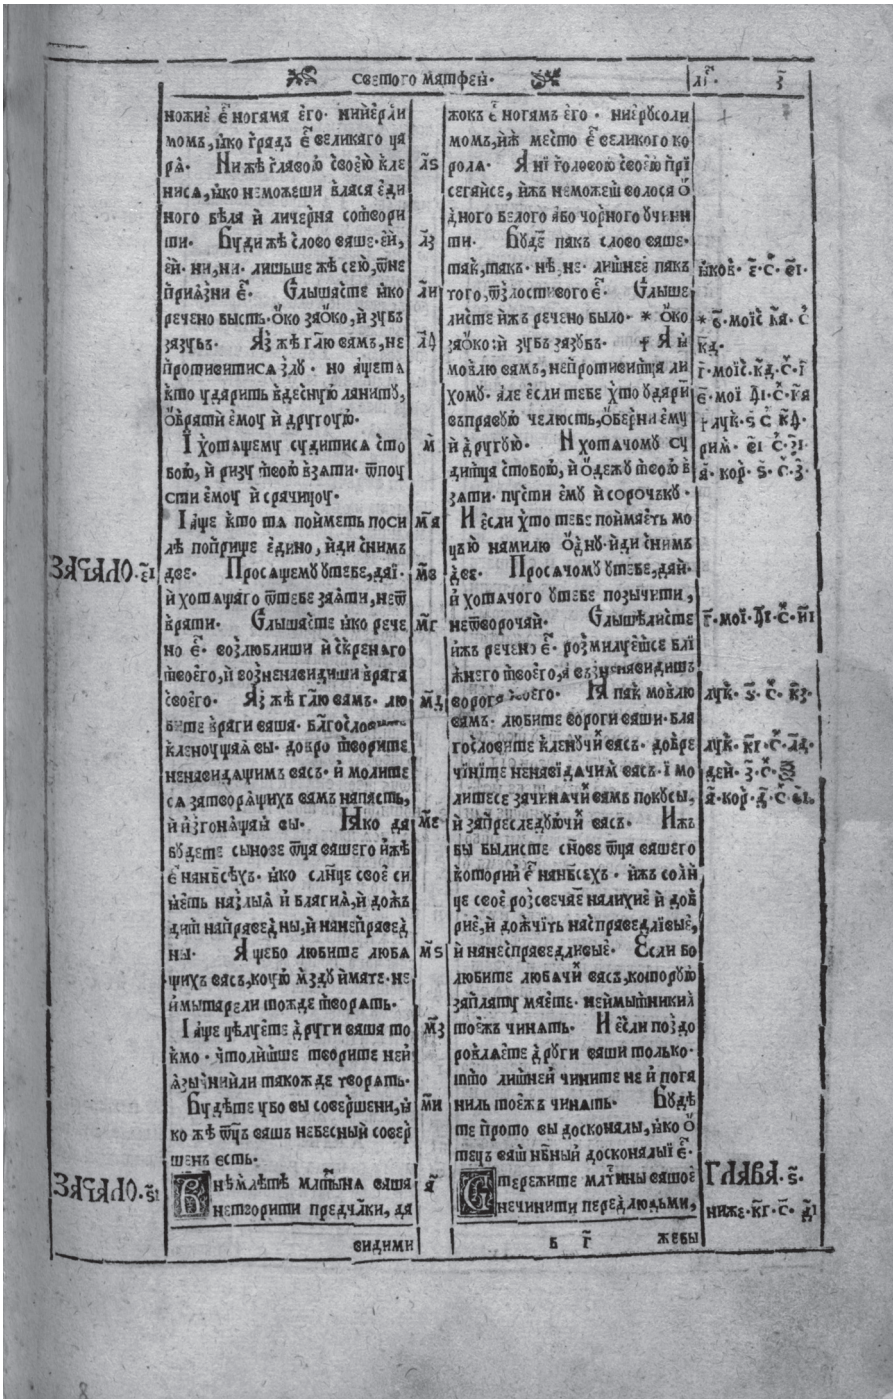 светого матфеѧ҆·
ножиѐ є҆ ногама его· ниИерлі
момъ, ꙗко градъ є҆ великаго ца
ра· Ни же главою своею кле
нисѧ, ꙗко неможеши власа еди
ного бѣла и личерна сотвори
ти· Буди же слово ваше· ей,
ей· ни, ни· лишьше же сею, ѿне
приꙗзни є҆· Слышасте ꙗко
речено бысть· око заоко, и зубъ
зазубъ· Аз же гл҃ю вамъ, не
противитисѧ злу· но аще тѧ
кто ударить вдесную ланиту,
обрати ємоу и другоую·
І хотащему судитисѧ сто
бою, и ризу твою взати· ѿпоу
сти ємоу и срачицоу·
І аще кто тѧ пойметь поси
лѣ поприще едино, иди снимъ
две· Просащему утебе, дай·
и хотащаго ѿтебе заѧти, неѿ
врати· Слышасте ꙗко рече
но є҆· возлюблиши искренаго
твоего, и возненавидиши врага
своего· Аз же гл҃ю вамъ· лю
бите враги ваша· благослов
кленоущаꙗ вы· добро творите
ненавидащимъ васъ· и молите
сѧ затворащихъ вамъ напасть,
и изгонащиꙗ вы· Ꙗко да
будете сынове ѿца вашего иже
є҆ нанб҃сѣхъ· ꙗко слн҃це своє си
ꙗеть назлыꙗ и благиꙗ, и дожъ
дит направедны, и нанеправед
ны· Аще бо любите люба
щихъ васъ, кую мзду имате· не
имытарели тожде творать·
І аще целуєте други ваша то
кмо· что лишше творите ней
ꙗзычниили такожде творать·
Будѣте убо вы совершени, ꙗ
ко же ѿц҃ъ вашъ небесный совер
шенъ єсть·
Внемлѣте млт҃ына ваша
нетворити предчл҃ки, да
видими
л҃ѕ
л҃з
л҃и
л҃ѳ
м҃
м҃а
м҃в
м҃г
м҃д
м҃е
м҃ѕ
м҃з
м҃и
а҃
жокъ є҆ ногамъ его· ниерусоли
момъ, иж место є҆ великого ко
рола· А ні головою своею прі
сегайсе, ижъ неможеш волоса о
дного белого або чорного учини
ти· Буде пакъ слово ваше·
такъ, такъ· нѣ, не· лишнее пакъ
того, ѿзлостивого є҆· Слыше
листе ижъ речено было· * око
заоко: и зубъ зазубъ· † А ꙗ
мовлю вамъ, непротивитца ли
хому· але если тебе хто удари
въправую челюсть, оберни єму
и другую· И хотачому су
дитца стобою, и одежу твою в
зати· пусти єму и сорочъку·
И если хто тебе поймаєть мо
цъю намилю одну· иди снимъ
две· Просачому утебе, дай·
и хотачого утебе позычити,
неѿворочай· Слышѣлисте
ижъ речено є҆· розмилуєтсе блі
жнего твоего, а възненавидишъ
ворога своего· Ꙗ пак мовлю
вамъ· любите вороги ваши· бла
гословите кленучи васъ· добре
чініте ненавідачимъ васъ· і мо
литесе зачиначи вамъ покусы,
и запреследуючи васъ· Ижъ
вы былисте сынове ѿца вашего
которий є҆ нанб҃сехъ· ижъ солн
це своє розсвечає налихиє и доб
риє, и дожчіть насправедлівые,
и нанесправедливые· Если бо
любите любачи васъ, которую
заплату маєте· неимытникил
тоежъ чинать· И если поздо
ровлаєте други ваши только·
што лишней чините не и пога
нилъ тоежъ чинать· Будѣ
те прото вы досконалы, ꙗко о
тецъ ваш нб҃ный досконалыї є҆·
Стережите млт҃ины вашоє
нечинити передлюдьми,
б г҃
жебы
ЗАЧАЛО· е҃і
ЗАЧАЛО· ѕ҃і
ꙗков· е҃· с· в҃і·
г҃· мої· к҃д· с·
ГЛАВА· ѕ҃·
ниже· к҃г· с· д҃і